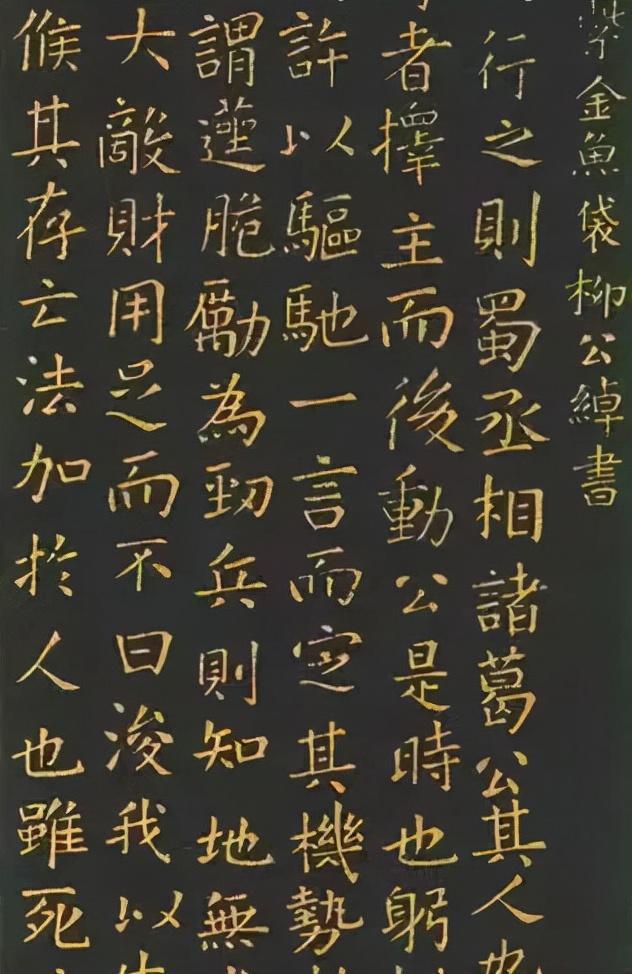 紫金魚袋柳公綽書
行之則蜀丞相諸葛公其人也
者擇主而後動公是時也躬
許以驅馳一言而定其機勢
謂蓫脆勵為勁兵則知地無
大敵財用足而不曰浚我以
候其存亡法加於人也雖死